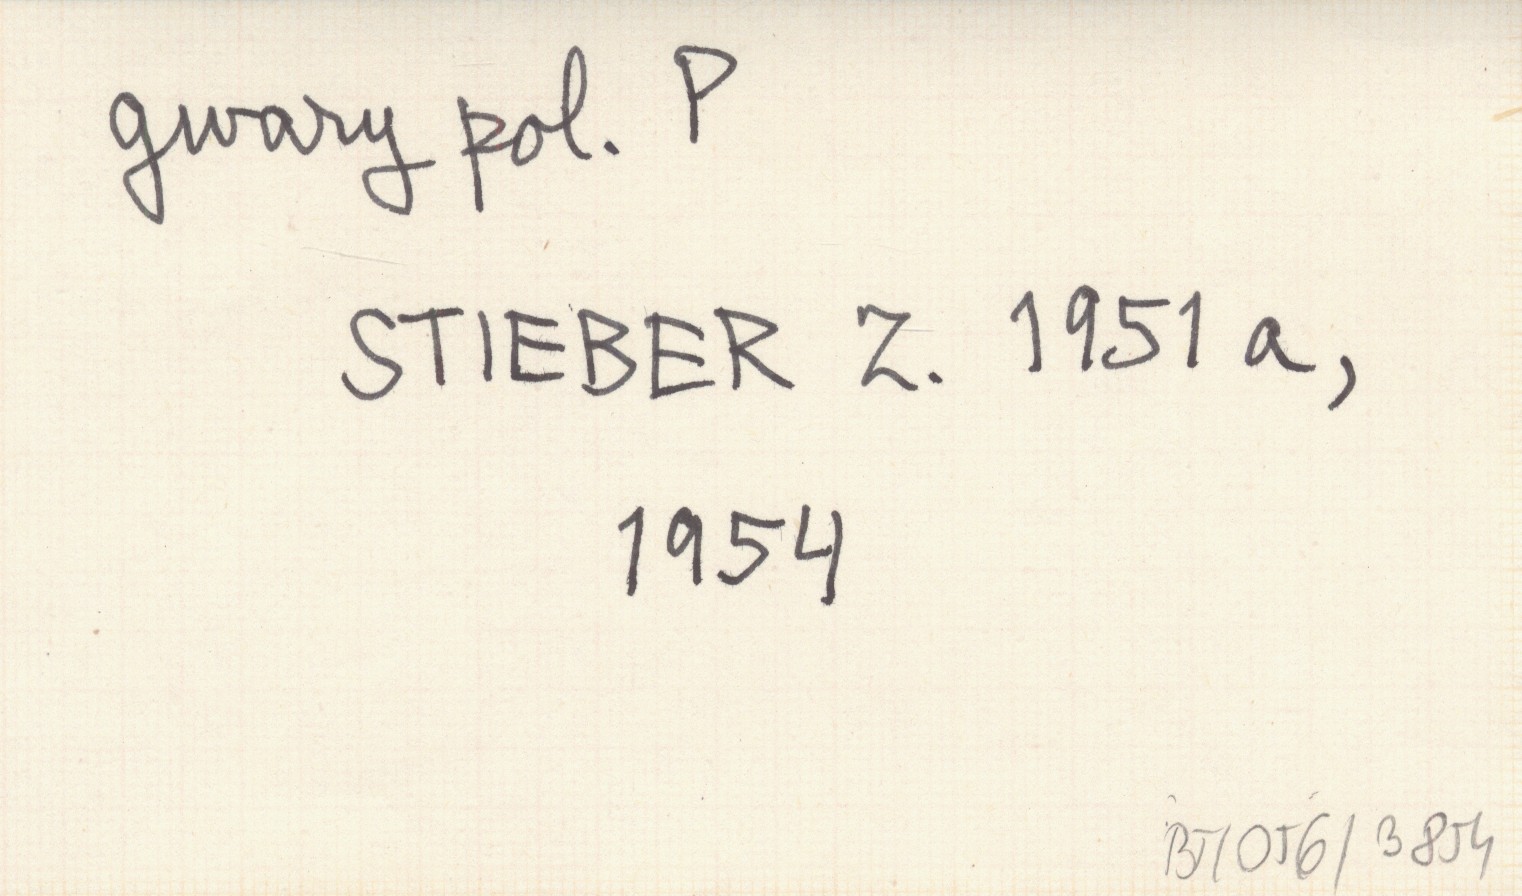 gwary pol. P
STIEBER Z. 1951 a,
1954
BT/056/3854